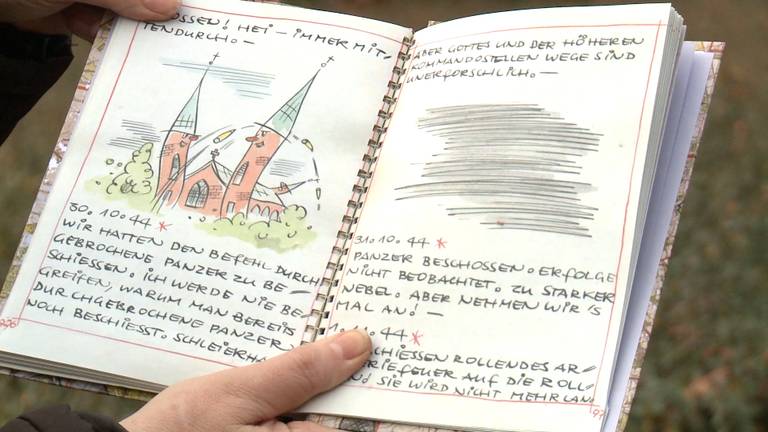 OSSEN! HEI – IMMER MIT-
TENDURCH. –
30. 10. 44 *
WIR HATTEN DEN BEFEHL DURCH
GEBROCHENE PANZER ZU BE –
SCHIESSEN. ICH WERDE NIE BE-
GREIFEN, WARUM MAN BEREIS
DURCHGEBROCHENE PANZER
NOCH BESCHIESST. SCHLEIERHA
ABER GOTTES UND DER HÖHEREN
KOMMANDOSTELLEN WEGE SIND
UNERFORSCHLICH. –
31. 10. 44 *
PANZER BESCHOSSEN. ERFOLGE
NICHT BEOBACHTET. ZU STARKER
NEBEL. ABER NEHMEN WIR'S
MAL AN! –
44 *
SCHIESSEN ROLLENDES AR-
RIEFEUER AUF DIE ROLL-
SIE WIRD NICHT MEHR LAN